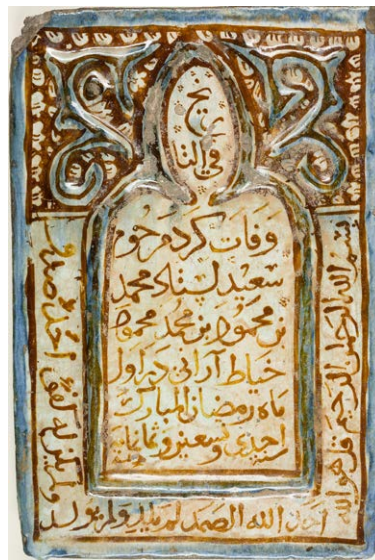 في التاريخ
وفات كرد مرحوم
سعيد استاد محمد
بن محمود بن محمد محمود
خياط آرانى در اول
ماه رمضان المبارك
احدى وتسعين وثمانمايه
بسم الله الرحمن الرحيم قل هو الله
احد الله الصمد لم يلد ولم يولد
ولم يكن له كفوا احد